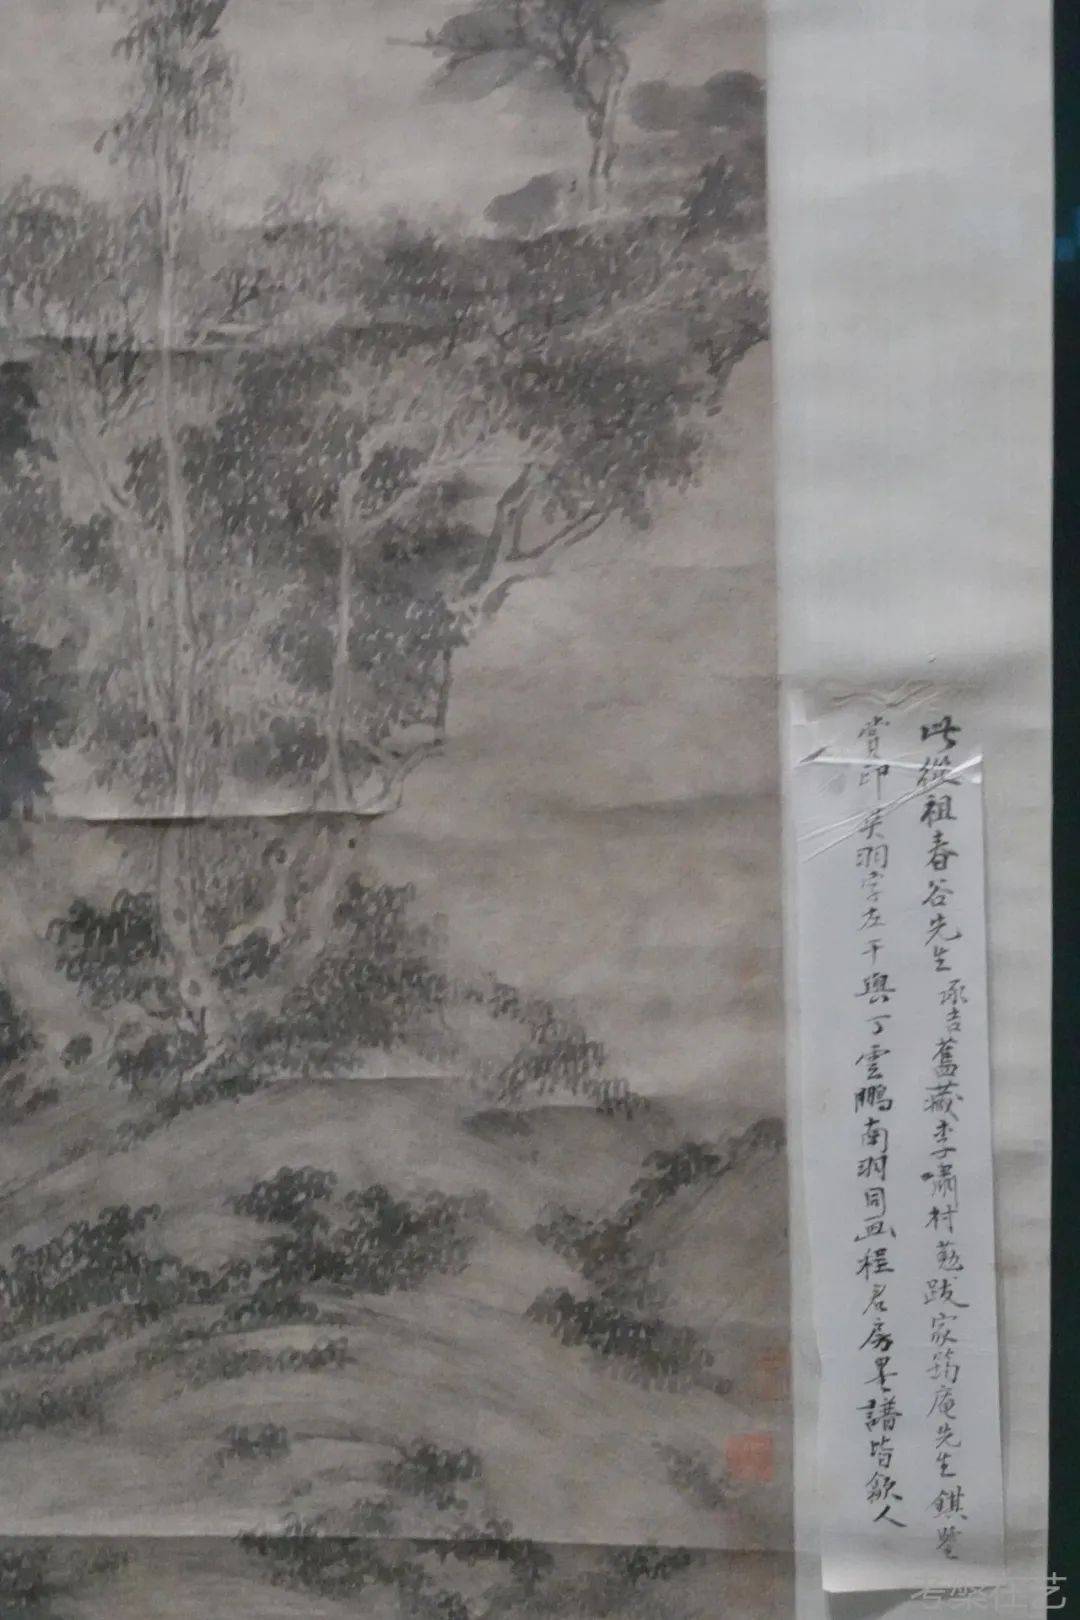 此從祖春谷先生承吉舊藏李嘯村葂跋家筠庵先生錤鑒
賞印吴羽字左干與丁雲鵬南羽同画程君房墨譜皆歙人
考槃在艺